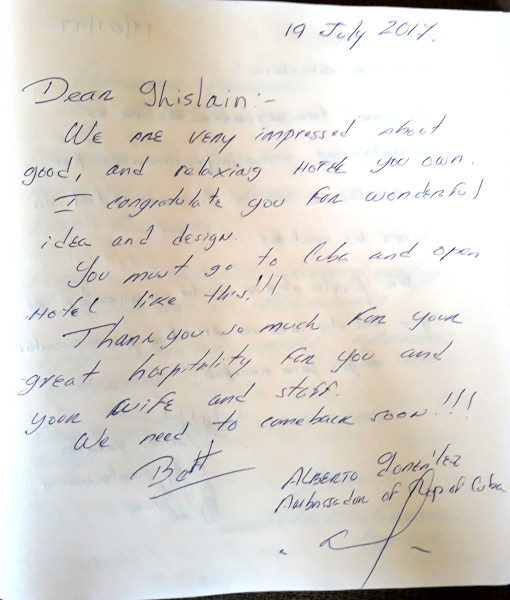 19 July 2017.
Dear Ghislain:-
We are very impressed about
good, and relaxing Hotel you own.
I congratulate you for wonderful
idea and design.
You must go to Cuba and open
Hotel like this!!!
Thank you so much for your
great hospitality for you and
your wife and staff.
We need to comeback soon!!!
Alberto González
Ambassador of Rep of Cuba